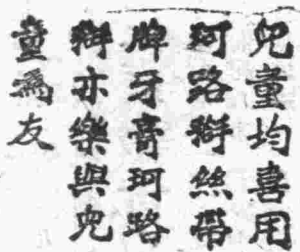 兒童均喜用
珂路搿絲帶
牌牙膏珂路
搿亦樂與兒
童為友